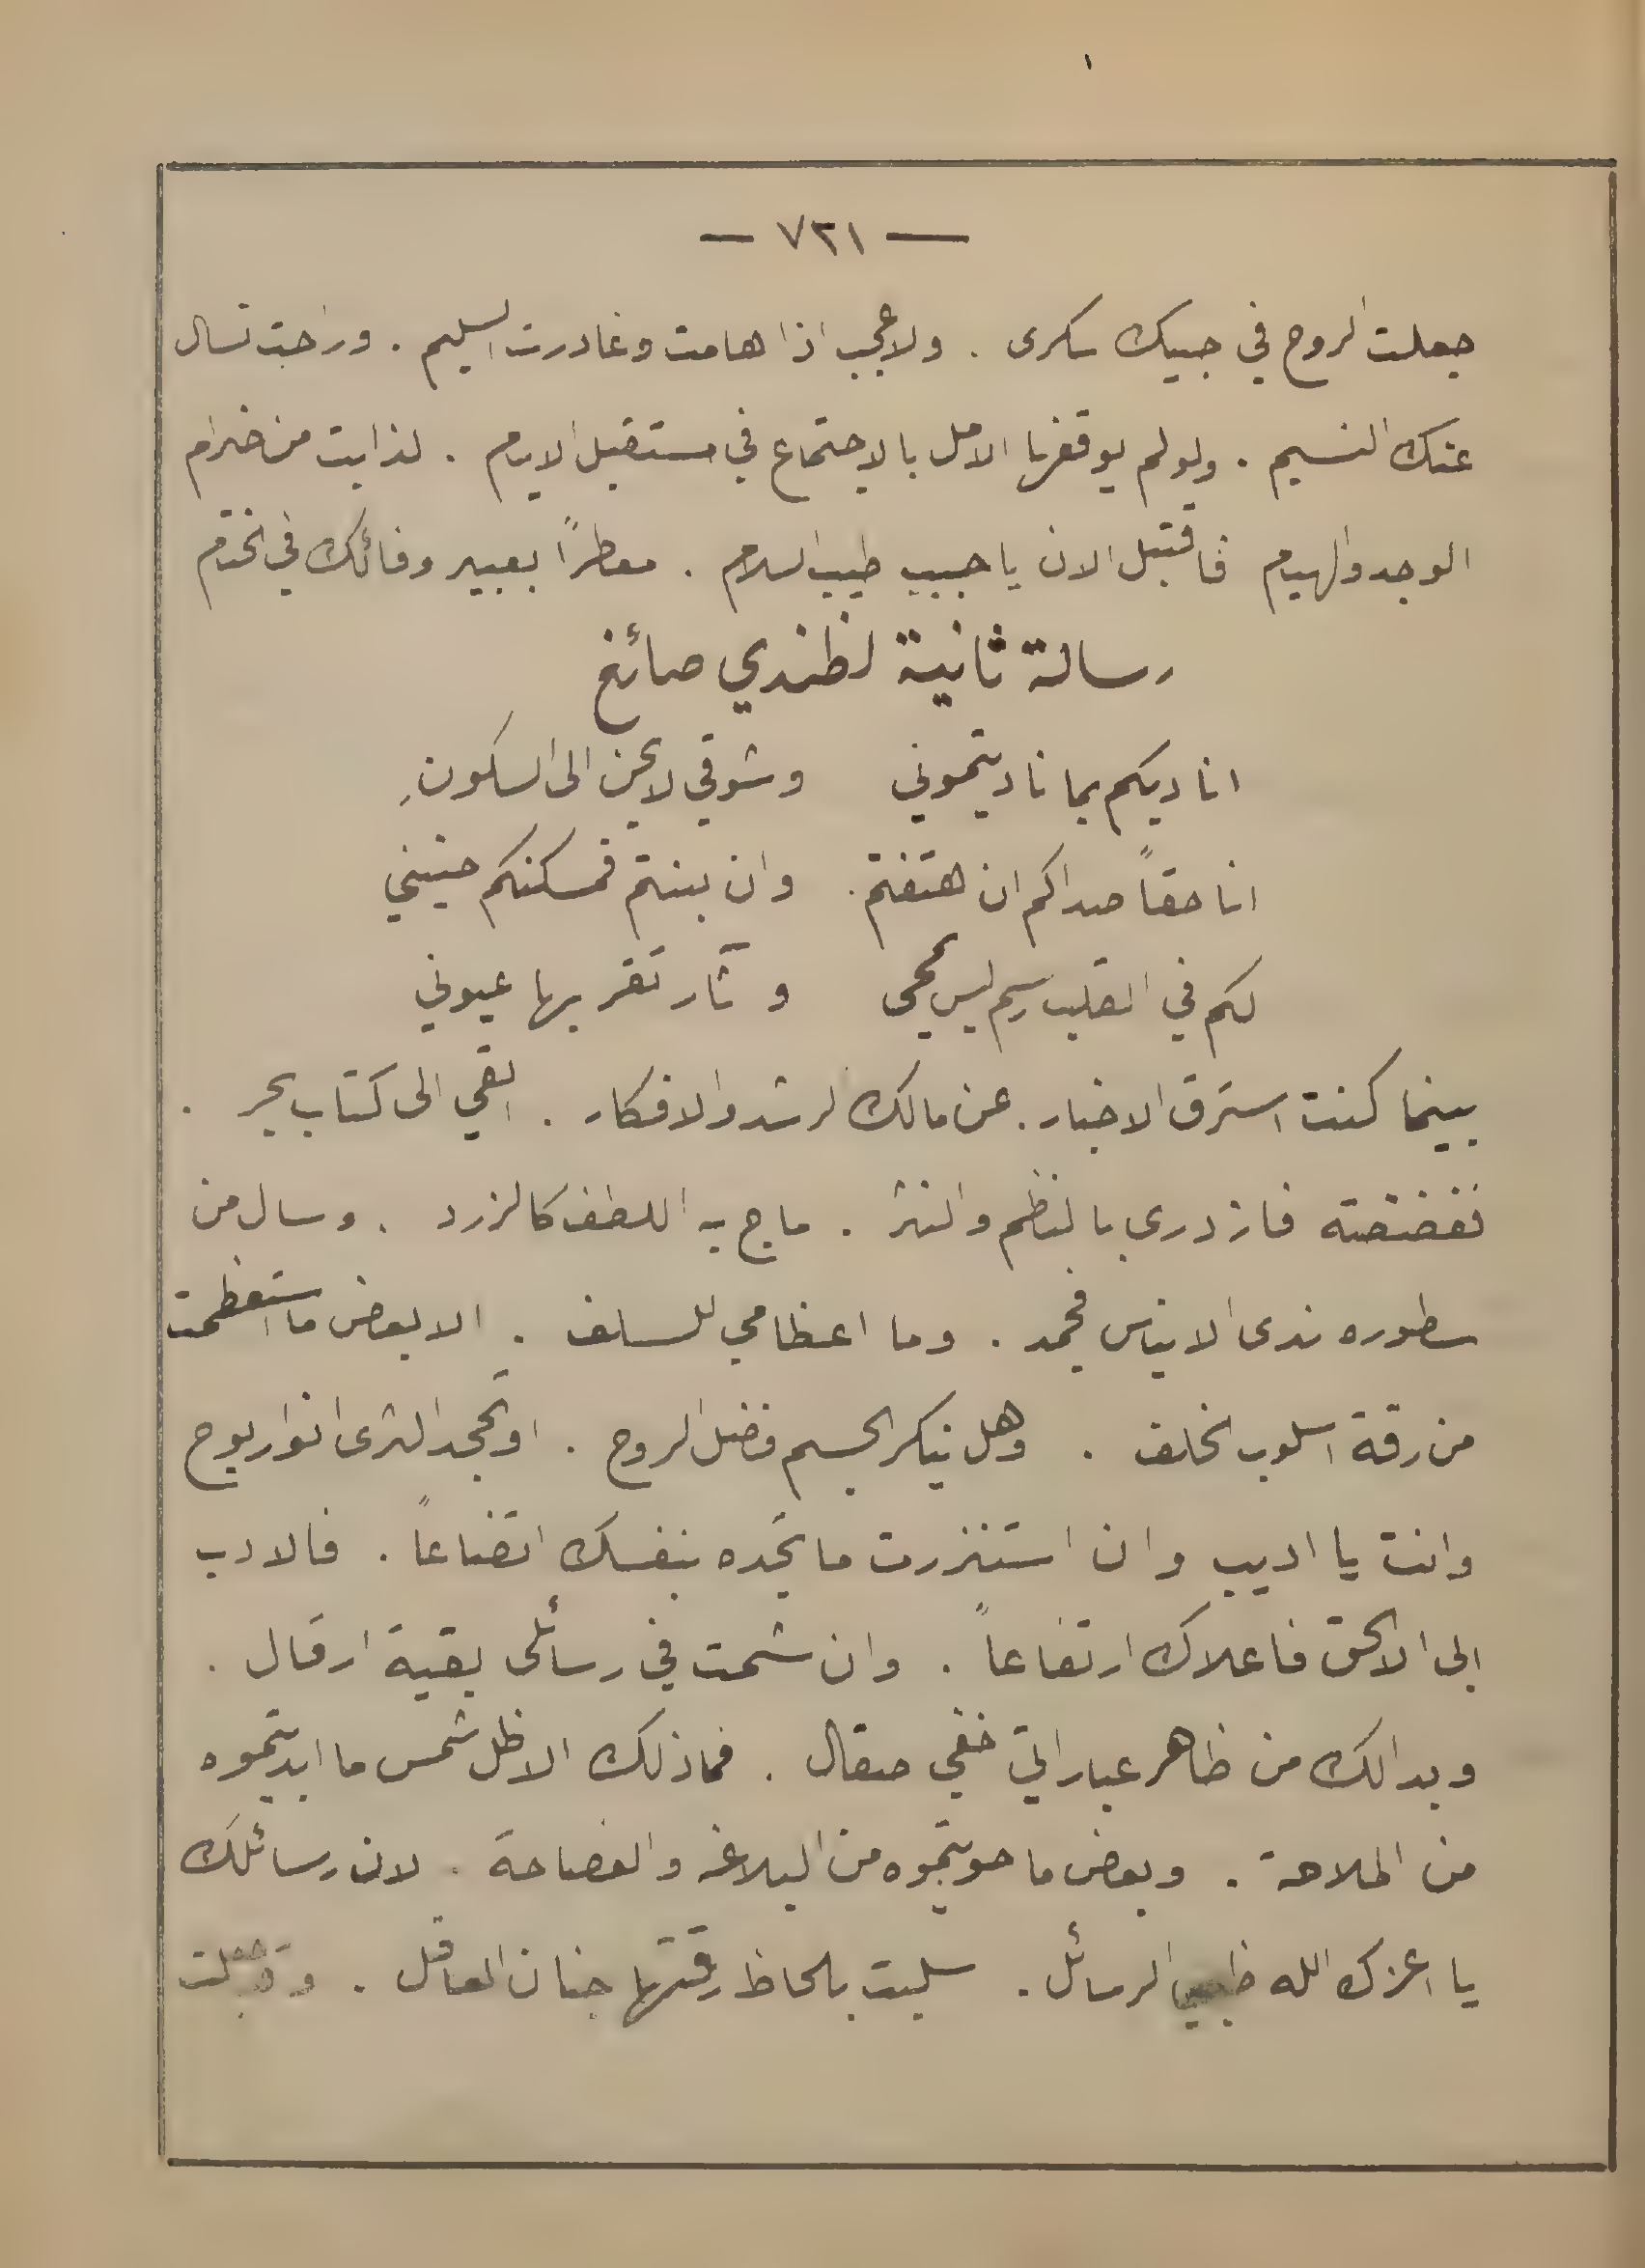 — ٧٢١ —
جعلت الروح في جبيك سكرى . ولا عجب اذا هامت وغادرت السليم . وراحت تسال
عنك النسيم . ولو لم يوقفها الامل بالاجتماع في مستقبل الايام . لذابت من ضرام
الوجد والهيام فاقتبل الان يا حبيب طيب السلام . معطراً بعبير وفائك في الختام
رسالة ثانية لظندي صائغ
اناديكم بما ناديتموني وشوقي لا يحن الى السكونِ
انا حقاً صداكم ان هتفتم . وان بنتم فمسكنكم حنيني
لكم في القلب رسم ليس يمحى وآثار تقر بها عيوني
بينما كنت استرق الاخبار . عن مالك الرشد والافكار . القي الى كتاب بحر .
ففضضته فازدرى بالنظم والنثر . ماج به اللطف كالزرد . وسال من
سطوره ندى الايناس فجمد . وما اعظامي للسلف . الا بعض ما استعظمت
من رقة اسلوب الخلف . وهل ينكر الجسم فضل الروح . او تجحد الثرى انوار يوح
وانت يا اديب وان استنزرت ما تجده بنفسك اتضاعاً . فالادب
ابى الا الحق فاعلاك ارتفاعاً . وان شمت في رسائلى بقية ارقال .
وبدا لك من ظاهر عباراتي خفي صقال . فما ذلك الا ظل شمس ما ابديتموه
من الملاحة . وبعض ما حويتموه من البلاغه والفصاحة . لان رسائلك
يا اعزك الله الرسائل . سلبت بلحاظ رقتها جنان العاقل .